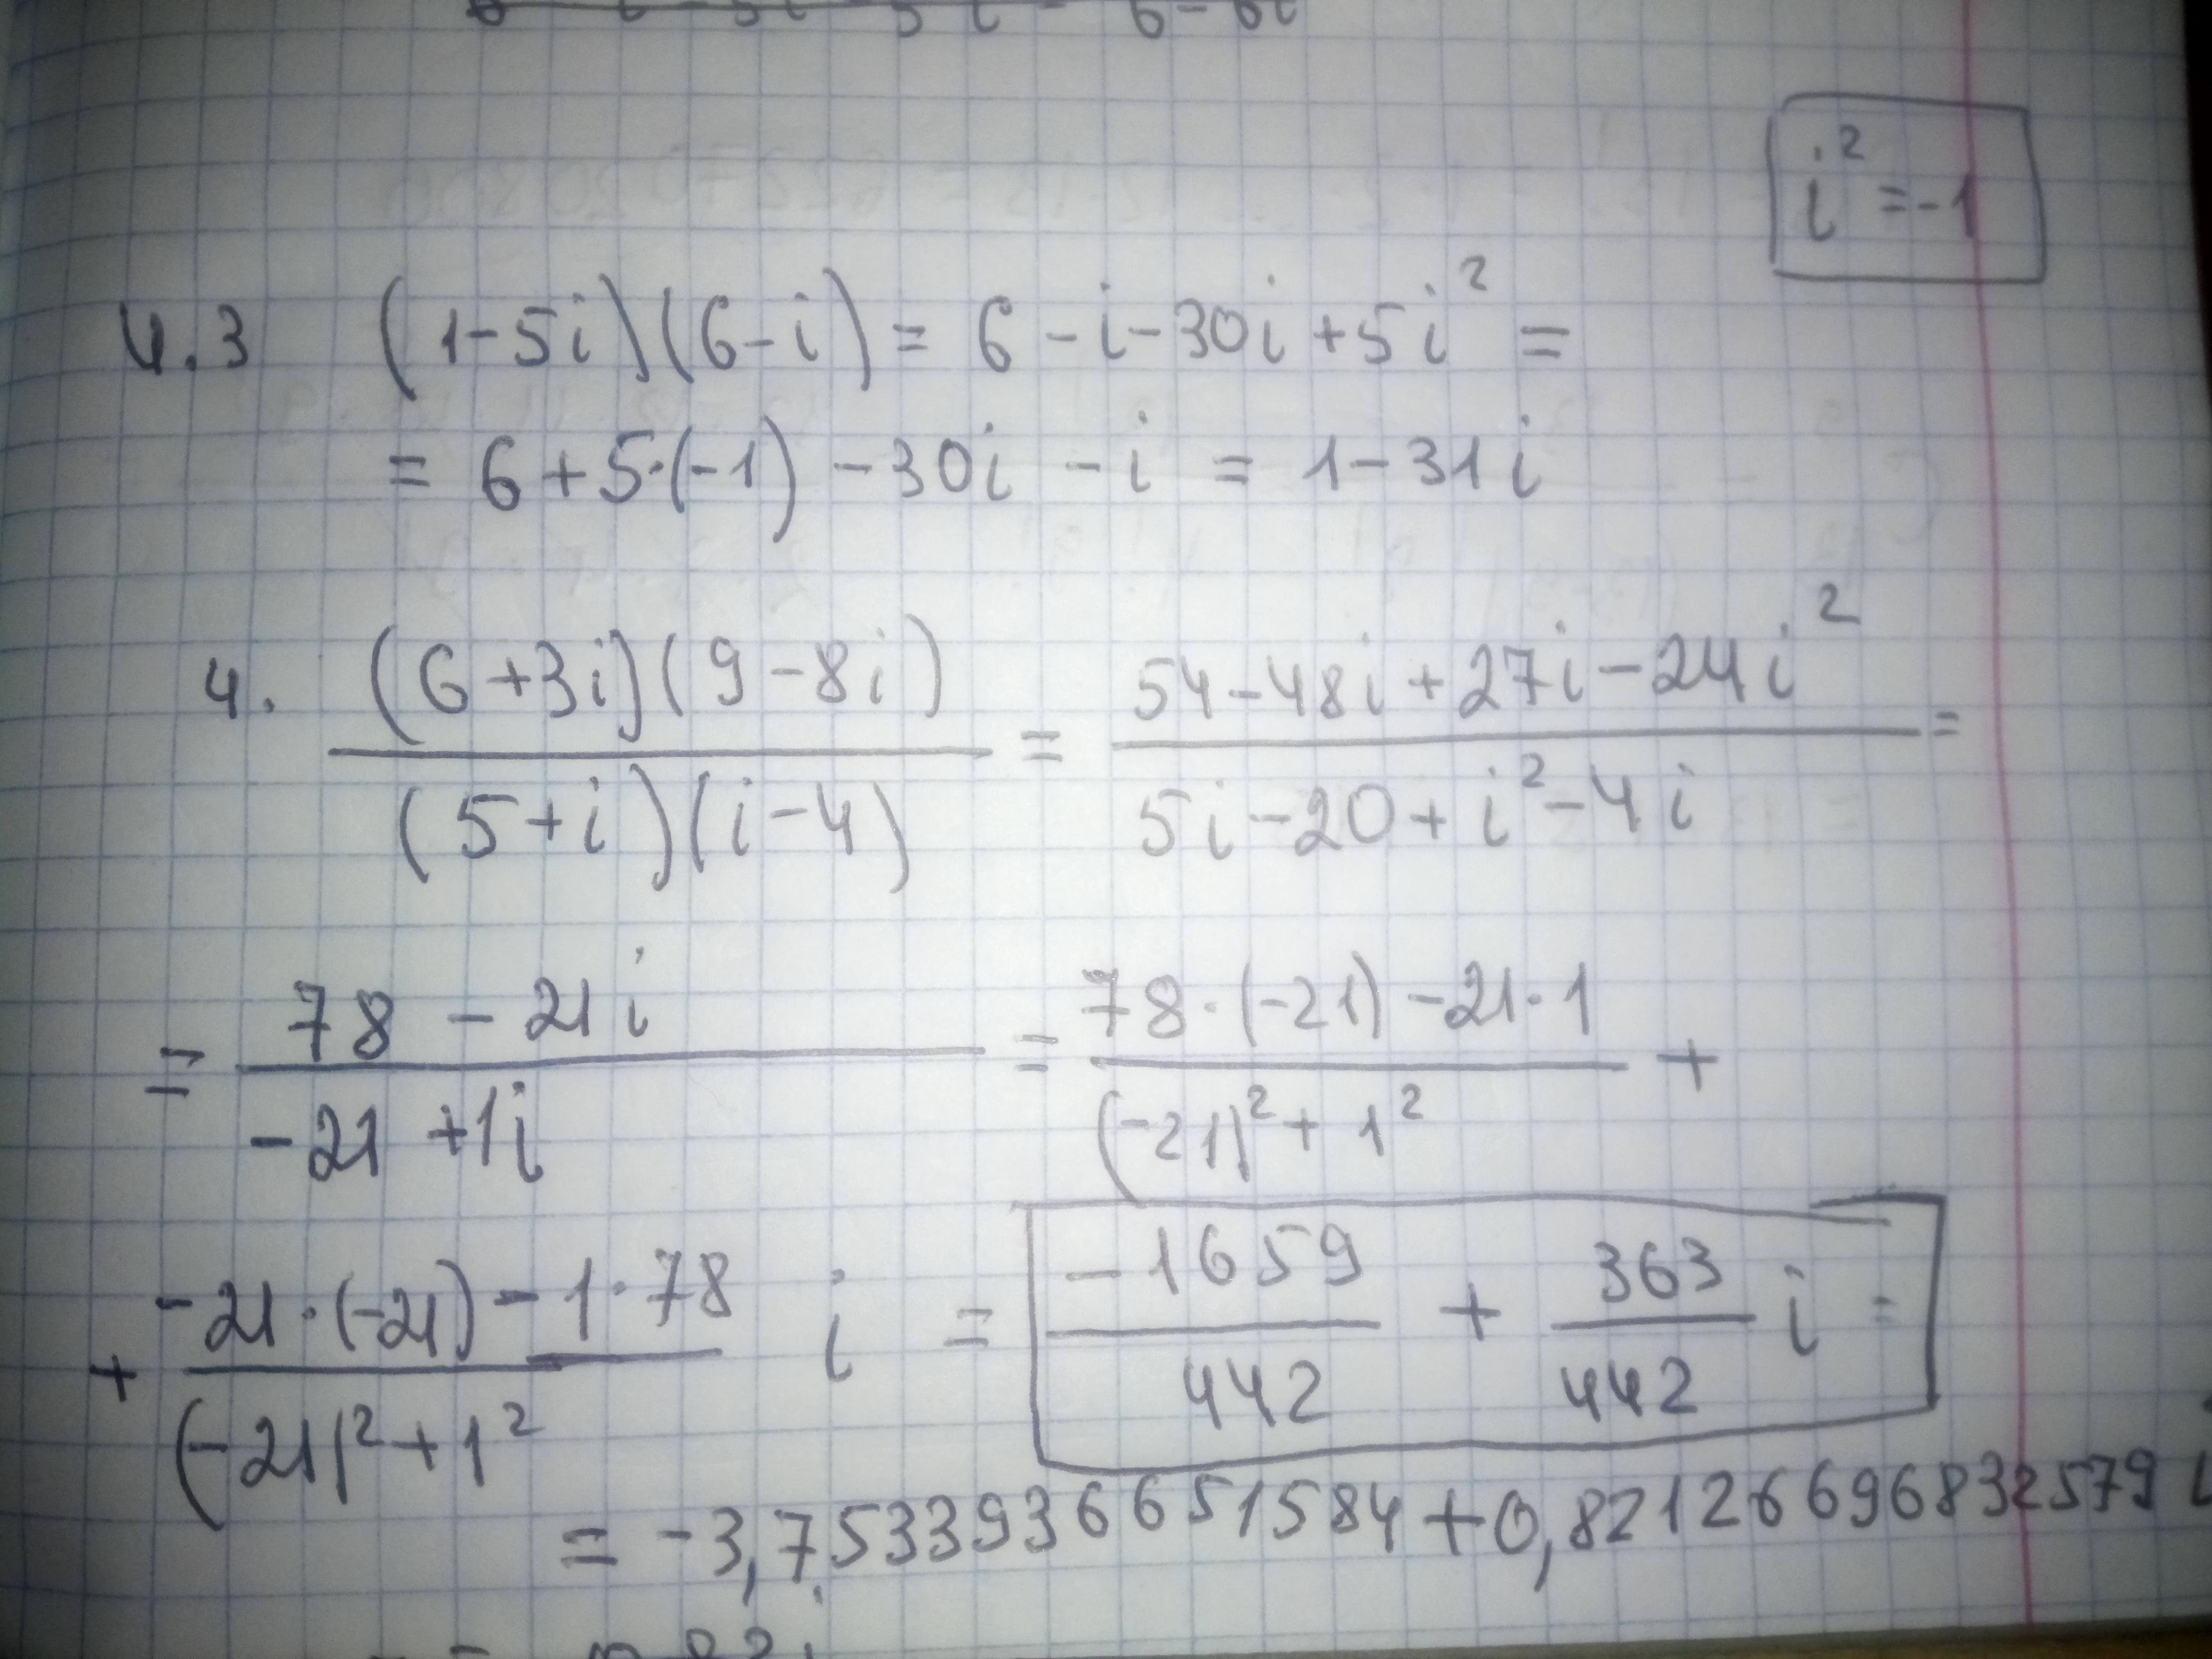 i² = -1
4.3 (1-5i)(6-i) = 6 - i - 30i + 5i² =
= 6 + 5·(-1) - 30i - i = 1 - 31i
4. (6+3i)(9-8i) / (5+i)(i-4) = 54 - 48i + 27i - 24i² / 5i - 20 + i² - 4i =
= 78 - 21i / -21 + 1i = 78·(-21) - 21·1 / (-21)² + 1² +
+ -21·(-21) - 1·78 / (-21)² + 1² i = -1659 / 442 + 363 / 442 i =
= -3,7533936651584 + 0,821266968325791 i